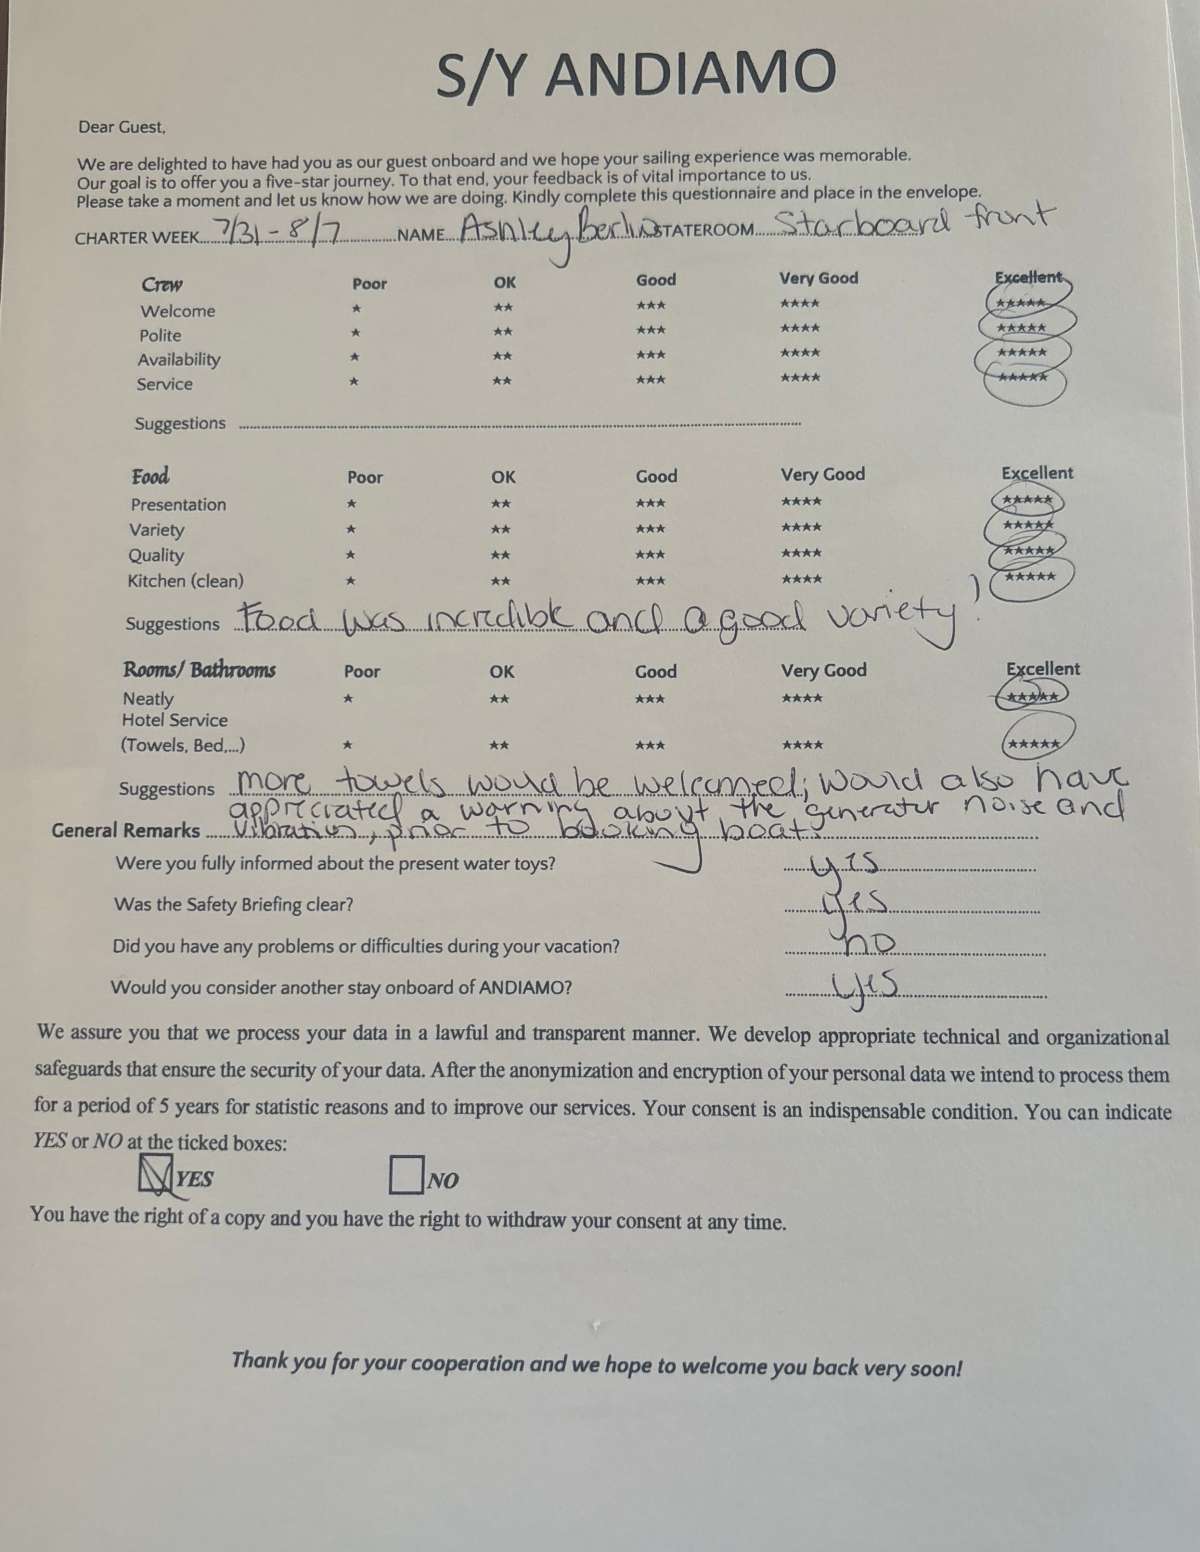 S/Y ANDIAMO
Dear Guest,
We are delighted to have had you as our guest onboard and we hope your sailing experience was memorable.
Our goal is to offer you a five-star journey. To that end, your feedback is of vital importance to us.
Please take a moment and let us know how we are doing. Kindly complete this questionnaire and place in the envelope.
CHARTER WEEK 7/31 - 8/7 NAME Ashley STATEROOM Starboard front
Crew Poor OK Good Very Good Excellent
Welcome ★ ★★ ★★★ ★★★★ ★★★★★
Polite ★ ★★ ★★★ ★★★★ ★★★★★
Availability ★ ★★ ★★★ ★★★★ ★★★★★
Service ★ ★★ ★★★ ★★★★ ★★★★★
Suggestions
Food Poor OK Good Very Good Excellent
Presentation ★ ★★ ★★★ ★★★★ ★★★★★
Variety ★ ★★ ★★★ ★★★★ ★★★★★
Quality ★ ★★ ★★★ ★★★★ ★★★★★
Kitchen (clean) ★ ★★ ★★★ ★★★★ ★★★★★
Suggestions Food was incredible and a good variety!
Rooms/ Bathrooms Poor OK Good Very Good Excellent
Neatly ★ ★★ ★★★ ★★★★ ★★★★★
Hotel Service
(Towels, Bed,...) ★ ★★ ★★★ ★★★★ ★★★★★
Suggestions more towels would be welcomed; would also have
appreciated a warning about the generator noise and
General Remarks vibration, prior to booking boat.
Were you fully informed about the present water toys? yes
Was the Safety Briefing clear? yes
Did you have any problems or difficulties during your vacation? no
Would you consider another stay onboard of ANDIAMO? yes
We assure you that we process your data in a lawful and transparent manner. We develop appropriate technical and organizational
safeguards that ensure the security of your data. After the anonymization and encryption of your personal data we intend to process them
for a period of 5 years for statistic reasons and to improve our services. Your consent is an indispensable condition. You can indicate
YES or NO at the ticked boxes:
YES NO
You have the right of a copy and you have the right to withdraw your consent at any time.
Thank you for your cooperation and we hope to welcome you back very soon!